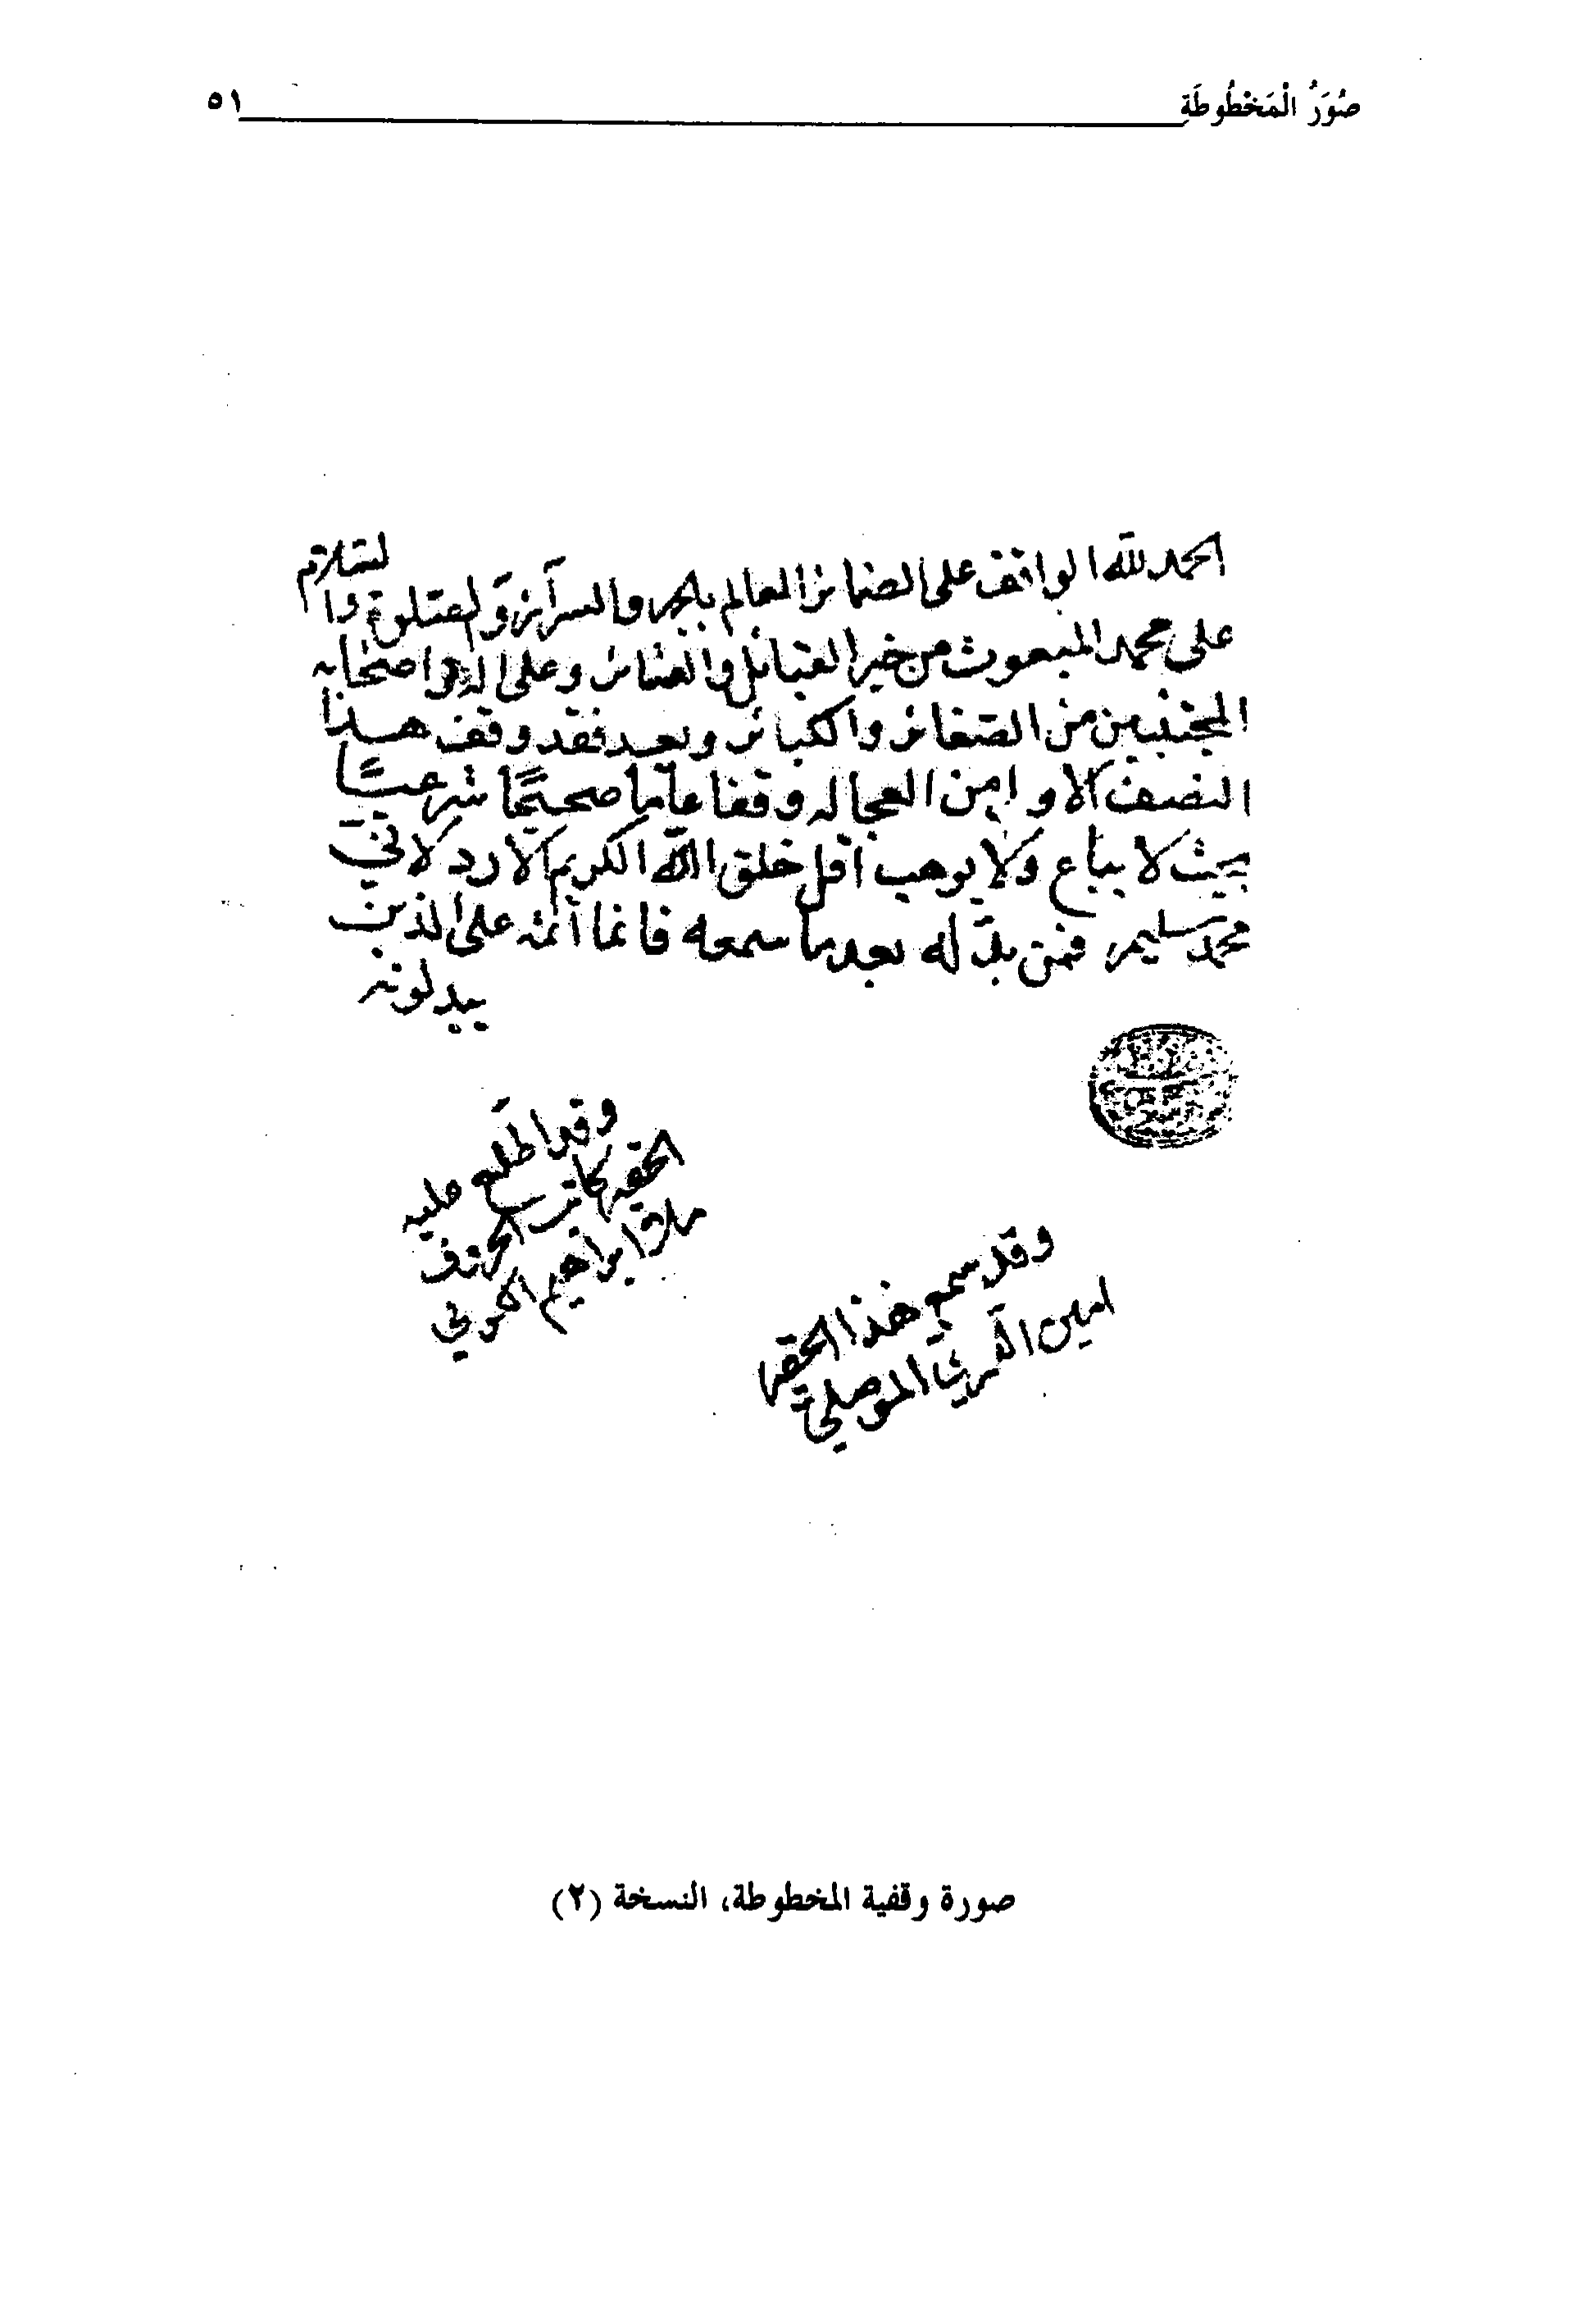 صُوَرُ الْمَخْطُوطَةِ ٥١
الحمد لله الواقف على الضمائر العالم بالجهر والسرآئر وَالصّلوة والسّلام
على محمد المبعوث من خير القبائل والعشائر وعلى اله واصحابه
المجتنبين من الصّغائر والكبائر وبعد فقد وقف هذا
النصف الاول من العجاله وقفا عاما صحيحًا شرعيًّا
بحيث لا يباع ولا يوهب اقل خلق الله الكريم
محمد سليم فمن بدّله بعدما سمعه فانما اثمه على الذين
يبدلونه
وقد اطّلع عليه
الحقير كاتب الحروف
ملا ابراهيم
وقد سمع هذا الحقير
امين الموصلي
صورة وقفية المخطوطة، النسخة (٢)